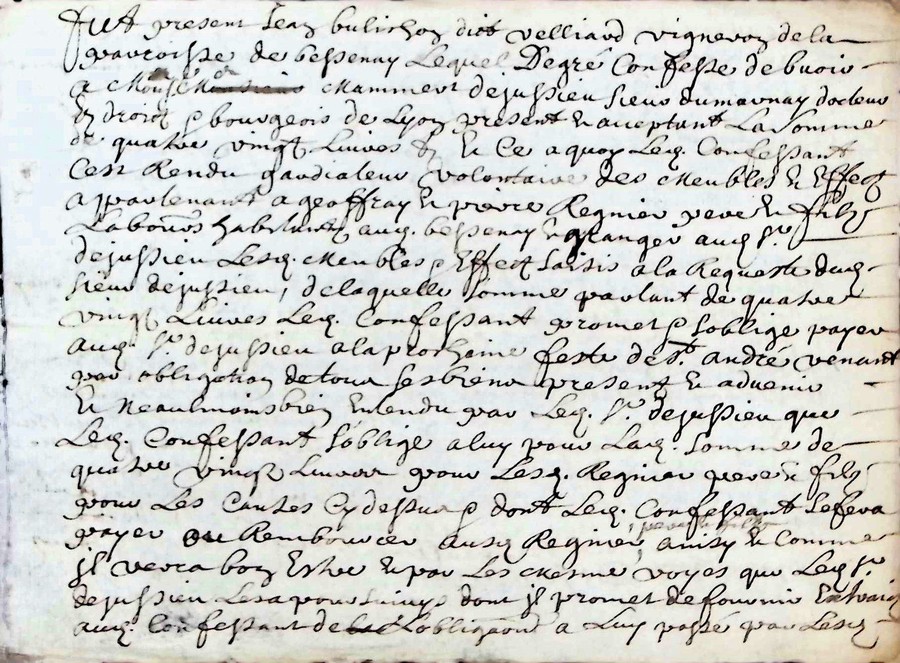 Fut present Jean bulichon dict velliard vigneron de la
parroisse de bessenay Lequel Degré Confesse debvoir
a Mons.r Mammert dejussieu sieur dumarnay docteur
En droictz & bourgeois de Lyon present et acceptant La somme
de quatre vingtz Livres Et Ce a quoy Led. Confessant
Cest Rendu gardiateur volontaire des Meubles et Effectz
apartenantz a geoffray et pierre Regnier pere et filz
Labour.s habitantz aud. bessenay et granger aud. Sr.
dejussieu Lesd. Meubles & Effectz saisis a la Requeste dud.
sieur dejussieu, delaquelle somme parlant de quatre
vingtz Livres Led. Confessant promet & soblige payer
aud. Sr. dejussieu a la prochaine feste de St. andré venant
par obligation de tous ses biens present et advenir
Et Neaulmoins bien Entendu par Led. Sr. dejussieu que
Led. Confessant soblige a luy pour Lad. somme de
quatre vingtz Livres pour Lesd. Regnier pere et filz
pour Les Causes Cydessus & dont Led. Confessant se fera
payer ou Rembourcer ausd. Regnier, pere et filz ainsy et Comme
jl verra bon Estre et par Les mesme voyes que Led. Sr.
dejussieu Les a poursuivys dont jl promet de fournir Extraict
aud. Confessant de Lobligaon a Luy passé par Lesd.